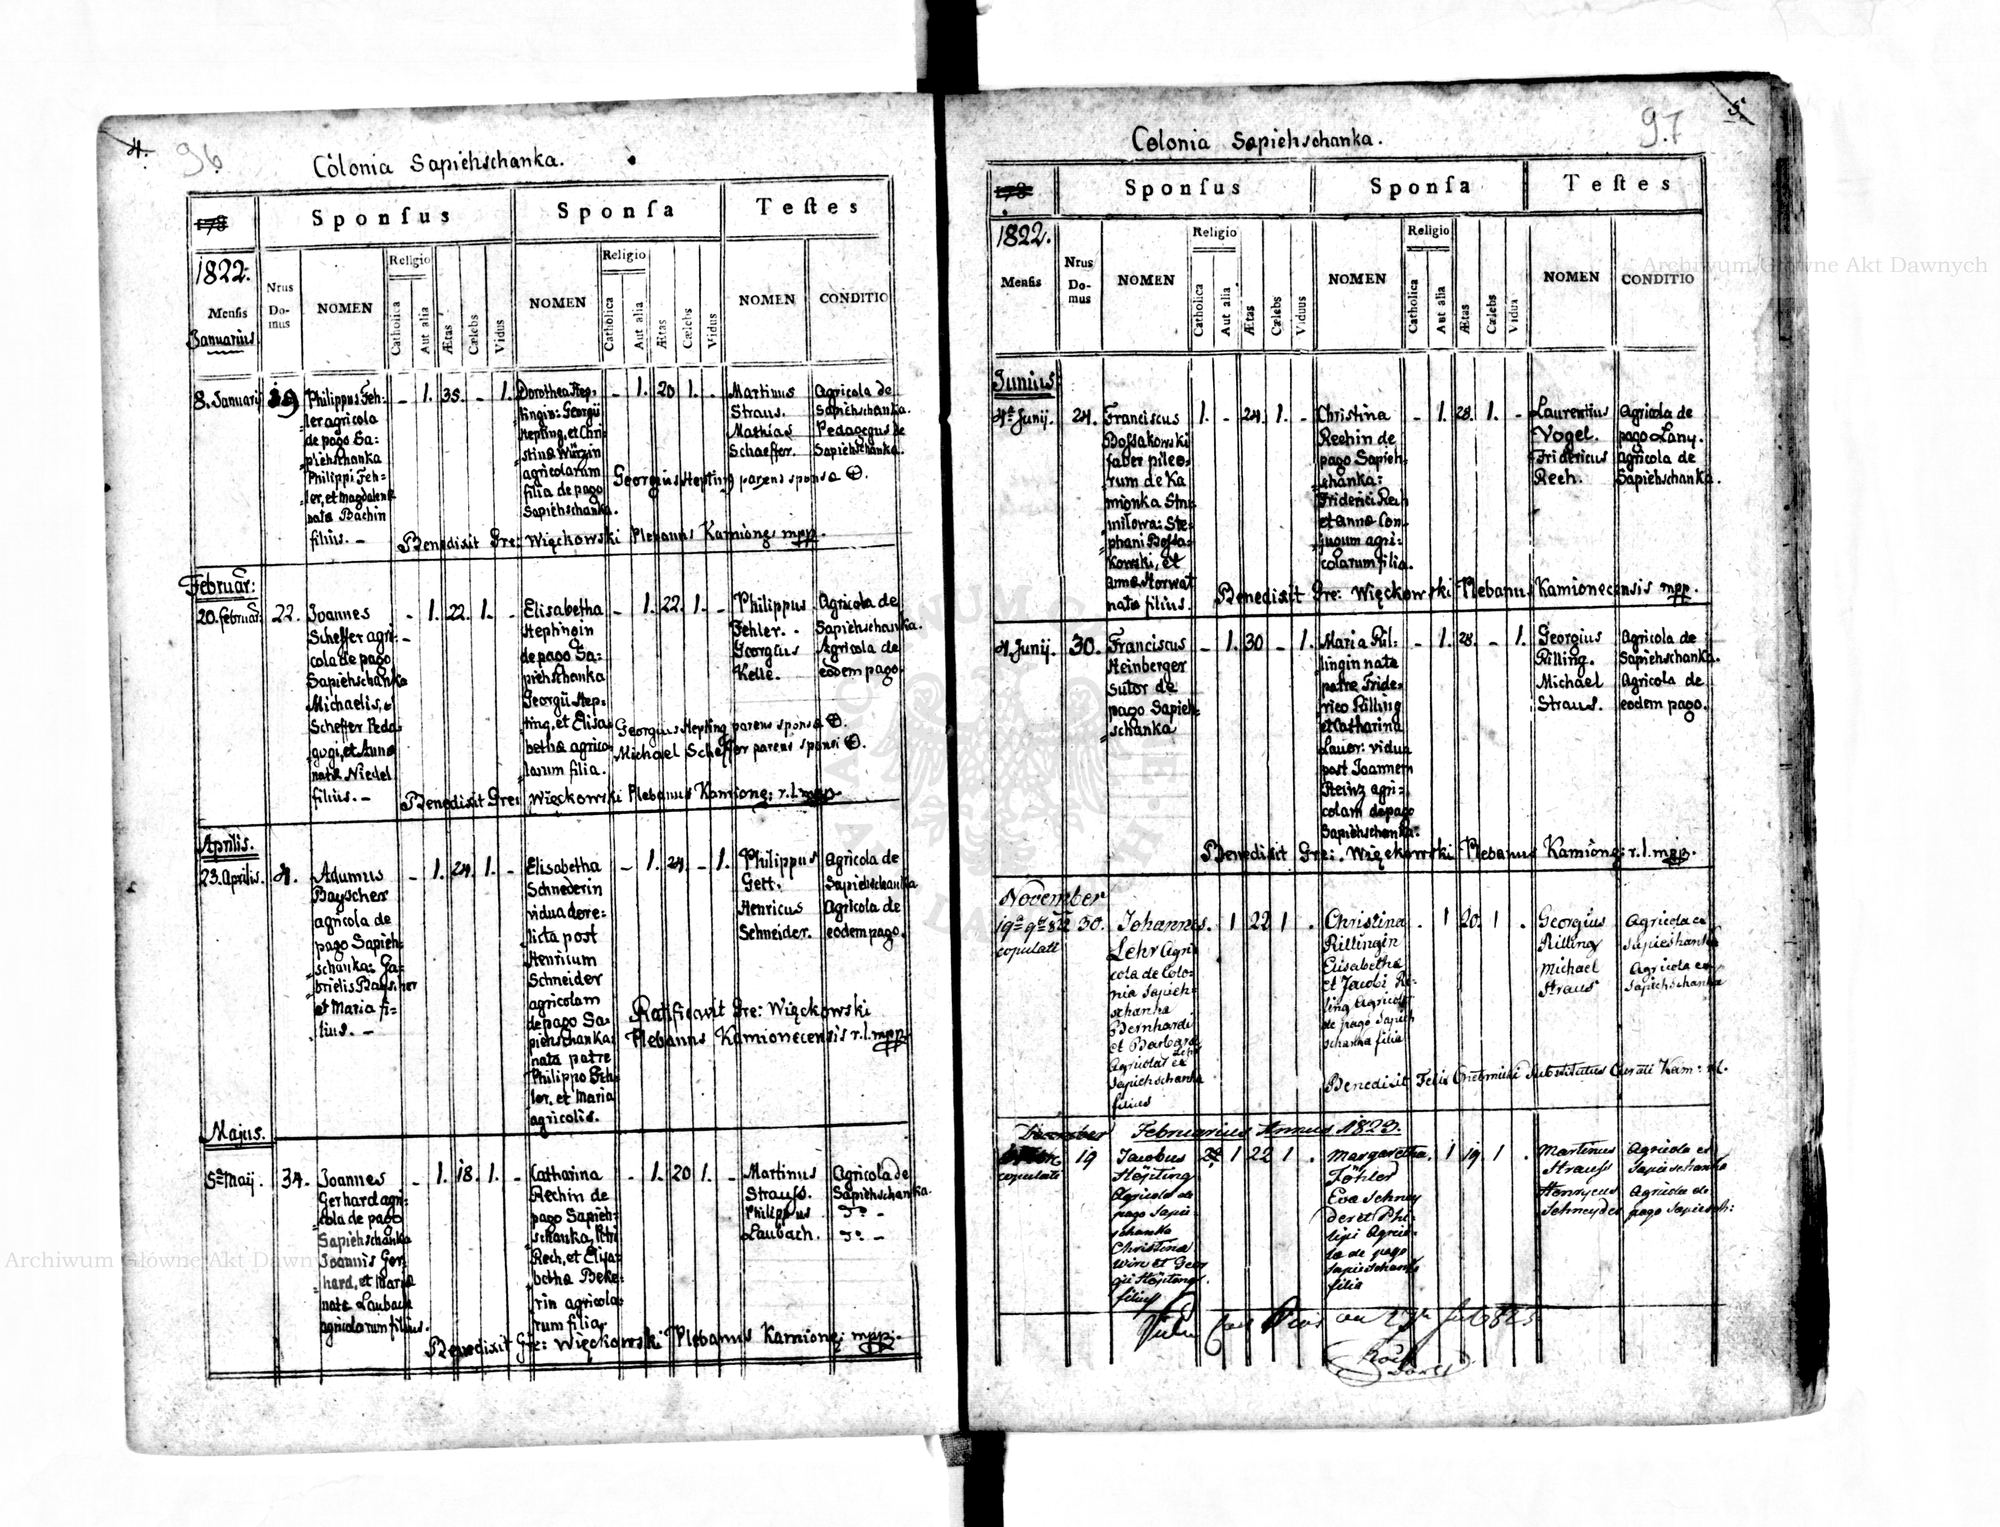 4.
96
Colonia Sapiehschanka.
178
Sponſus
Sponſa
Teſtes
1822.
Menſis
Januarius
Nrus Domus
NOMEN
Religio
Catholica
Aut alia
Ætas
Cælebs
Vidus
NOMEN
Religio
Catholica
Aut alia
Ætas
Cælebs
Vidus
NOMEN
CONDITIO
8. Januarij
39
Philippus Feh-
ler agricola
de pago Sa:
piehschanka
Philippi Feh-
ler, et Magdalenæ
natæ Bachin
filius. –
– 1. 35. – 1.
Dorothea Step-
tingin: Georgii
Stepting, et Chri
stinæ Würzin
agricolarum
filia de pago
Sapiehschanka.
– 1. 20 1. –
Martinus
Straus.
Mathias
Schaeffer.
Agricola de
Sapiehschanka.
Pedagogus de
Sapiehschanka.
Georgius Stepting parens sponsæ
Benedixit Gre: Więckowski Plebanus Kamione: mpp.
Februar:
20. Februar:
22.
Joannes
Scheffer agri:
cola de pago
Sapiehschanka
Michaelis,
Scheffer Peda-
gogi, et Annæ
natæ Niedel
filius. –
– 1. 22. 1. –
Elisabetha
Steptingin
de pago Sa:
piehschanka
Georgii Step-
ting, et Elisa-
bethæ agrico-
larum filia.
– 1. 22. 1. –
Philippus
Fehler.
Georgius
Kelle.
Agricola de
Sapiehschanka.
Agricola de
eodem pago
Georgius Stepting parens sponsæ
Michael Scheffer parens sponsi
Benedixit Gre: Więckowski Plebanus Kamione: r.l. mpp.
Aprilis.
23. Aprilis.
4.
Adamus
Bayscher
agricola de
pago Sapieh-
schanka: Ga-
brielis Bayscher
et Maria fi-
lius. –
– 1. 24. 1. –
Elisabetha
Schnederin
vidua dere-
licta post
Henricum
Schneider
agricolam
de pago Sa-
piehschanka:
nata patre
Philippo Feh-
ler, et Maria
agricolis.
– 1. 24. – 1.
Philippus
Gett.
Henricus
Schneider.
Agricola de
Sapiehschanka
Agricola de
eodem pago.
Ratificavit Gre: Więckowski
Plebanus Kamionecensis r.l. mpp.
Majus.
5ta Maij.
34.
Joannes
Gerhard agri-
cola de pago
Sapiehschanka
Joannis Ger-
hard, et Mariæ
natæ Laubach
agricolarum filius.
– 1. 18. 1. –
Catharina
Rechin de
pago Sapieh-
schanka, Petri
Rech, et Elisa-
bethæ Beke-
rin agricola-
rum filia.
– 1. 20 1. –
Martinus
Strauss.
Philippus
Laubach.
Agricola de
Sapiehschanka.
Benedixit Gre: Więckowski Plebanus Kamione: mpp.
5
97
Colonia Sapiehschanka.
178
Sponſus
Sponſa
Teſtes
1822.
Menſis
Nrus Domus
NOMEN
Religio
Catholica
Aut alia
Ætas
Cælebs
Viduus
NOMEN
Religio
Catholica
Aut alia
Ætas
Cælebs
Vidua
NOMEN
CONDITIO
Junius:
4ta Junij.
24.
Franciscus
Bossakowski
faber pileo-
rum de Ka
mionka Stru
milowa: Ste-
phani Bossa-
kowski, et
Annæ Horwat
natæ filius.
1. – 24. 1. –
Christina
Rechin de
pago Sapieh-
schanka:
Friderici Rech
et Annæ con-
jugum agri-
colarum filia.
– 1. 28. 1. –
Laurentius
Vogel.
Fridericus
Rech.
Agricola de
pago Lany.
agricola de
Sapiehschanka.
Benedixit Gre: Więckowski Plebanus Kamionecensis mpp.
4. Junij.
30.
Franciscus
Steinberger
Sutor de
pago Sapieh-
schanka
– 1. 30 – 1.
Maria Ril-
lingin nata
patre Fride-
rico Rilling
et Catharina
Lauer: vidua
post Joannem
Steinz agri-
colam de pago
Sapiehschanka:
– 1. 28. – 1.
Georgius
Rilling.
Michael
Straus.
Agricola de
Sapiehschanka.
Agricola de
eodem pago.
Benedixit Gre: Więckowski Plebanus Kamione: r.l. mpp.
November
19a 9br 822
copulati
30.
Johannes
Lehr Agri
cola de Colo-
nia Sapieh-
schanka
Bernhardi
et Barbara
Lehr
Agricolar ex
Sapiehschanka
filius
. 1 22 1 .
Christina
Rillingin
Elisabetha
et Jacobi Ri-
ling Agricolæ
de pago Sapieh
schanka filia
. 1 20. 1 .
Georgius
Rilling
Michael
Straus
Agricola ex
Sapieshanka
Agricola ex
Sapiehschanka
Benedixit Felix Substitutus Curati Kam:
December Februarius Annus 1823.
copulati
19
Jacobus
Stöpting
Agricola de
pago Sapie-
schanka
Christinæ
Wirz et Geor
gii Stöpting
filius
1 22 1 .
Margaretha
Föhler
Eva Schney
der et Phi-
lipi Agrico-
læ de pago
Sapieschanka
filia
. 1 19 1 .
Martinus
Strauss
Henrycus
Schneyder
Agricola ex
Sapieschanka
Agricola de
pago Sapiesch:
Archiwum Główne Akt Dawnych
Archiwum Główne Akt Dawnych